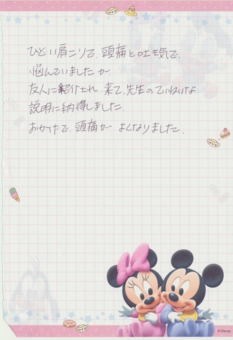 ひどい肩こりで、頭痛と吐き気で、
悩んでいましたが
友人に紹介され 来て、先生のていねいな
説明に納得しました。
おかげで、頭痛が よくなりました。
©Disney